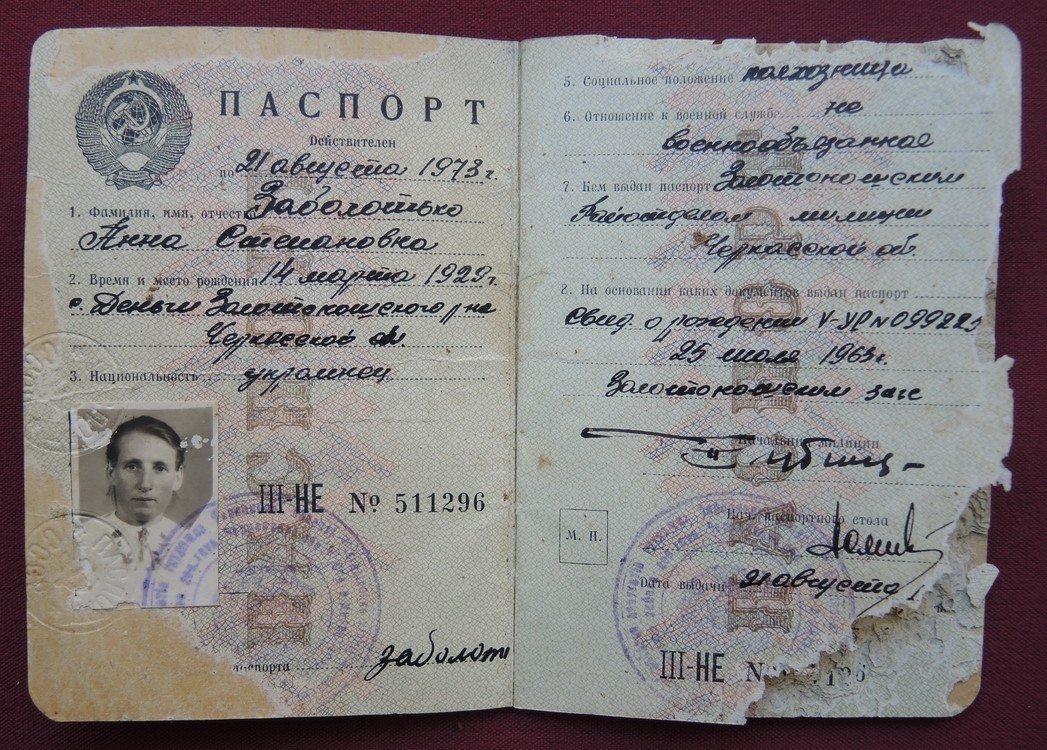 ПАСПОРТ
Действителен
по 21 августа 1973 г.
1. Фамилия, имя, отчество Заболотько
Анна Степановна
2. Время и место рождения 14 марта 1929 г.
с. Деньги Золотоношского р на
Черкасской об.
3. Национальность украинец
III-НЕ № 511296
паспорта заболот
5. Социальное положение колхозница
6. Отношение к военной службе не
военнообязанное
7. Кем выдан паспорт Золотоношским
Райотделом милиции
Черкасской об.
8. На основании каких документов выдан паспорт
Свид. о рождении V-УР N 099225
25 июля 1963 г.
Золотоношским загс
Начальник милиции
Нач. паспортного стола
М. П.
Дата выдачи 21 августа 1
III-НЕ